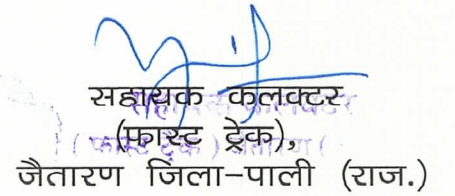 सहायक कलक्टर
(फ़ास्ट ट्रेक),
जैतारण जिला-पाली (राज.)